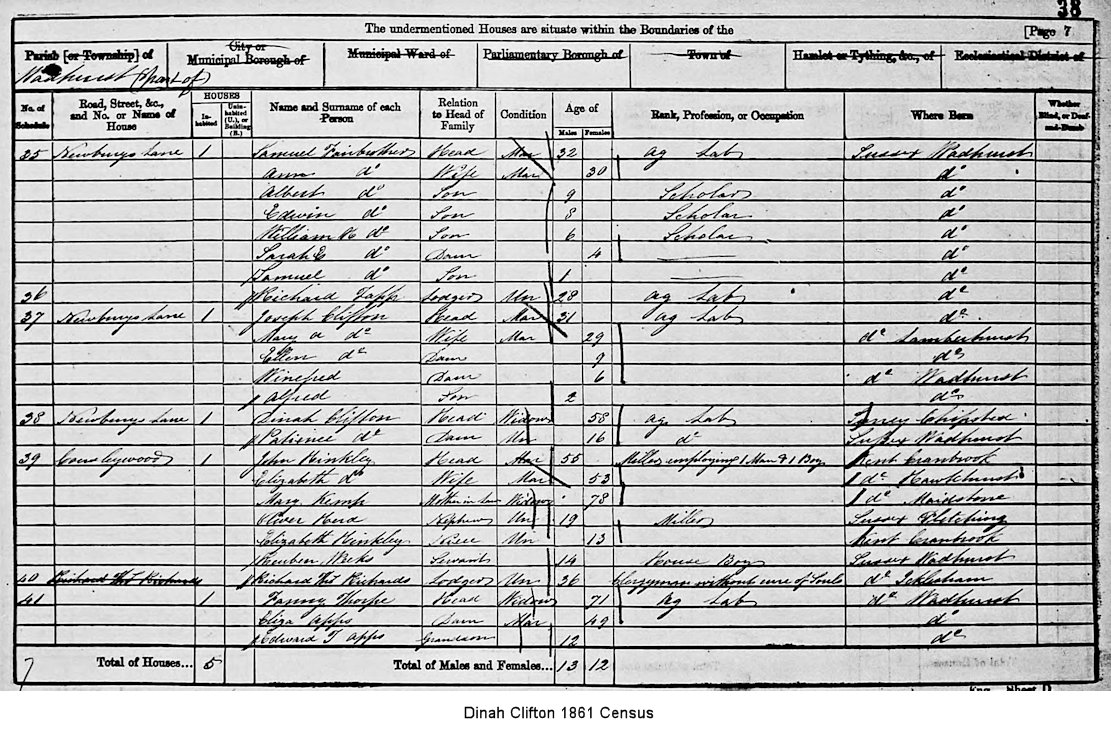 38
The undermentioned Houses are situate within the Boundaries of the [Page 7
Parish [or Township] of City or Municipal Borough of Municipal Ward of Parliamentary Borough of Town of Hamlet or Tything, &c., of Ecclesiastical District of
Wadhurst (part of)
No. of Schedule Road, Street, &c., and No. or Name of House HOUSES Inhabited Uninhabited (U.), or Building (B.) Name and Surname of each Person Relation to Head of Family Condition Age of Males Females Rank, Profession, or Occupation Where Born Whether Blind, or Deaf-and-Dumb
35 Newburys Lane 1 Samuel Fairbrother Head Mar 32 Ag Lab Sussex Wadhurst
Ann do Wife Mar 30 do
Albert do Son 9 Scholar do
Edwin do Son 8 Scholar do
William H do Son 6 Scholar do
Sarah E do Daur 4 do
Samuel do Son 1 do
36 Richard Tapp Lodger Un 28 Ag Lab do
37 Newburys Lane 1 Joseph Clifton Head Mar 31 Ag Lab do
Mary A do Wife Mar 29 do Lamberhurst
Ellen do Daur 9 do
Winefred Daur 6 do Wadhurst
Alfred Son 2 do
38 Newburys Lane 1 Dinah Clifton Head Widow 58 Ag Lab Chipsted
Patience do Daur Un 16 do Sussex Wadhurst
39 1 John Hinkley Head Mar 55 Miller employing 1 Man & 1 Boy Kent Cranbrook
Elizabeth do Wife Mar 53 do Hawkhurst
Mary Kemp Mother in Law Widow 78 do Maidstone
Oliver Nephew Un 19 Miller Sussex Fletching
Elizabeth Hinkley Niece Un 13 Kent Cranbrook
Reuben Weks Servant 14 House Boy Sussex Wadhurst
40 Richard Thos Richards Richard Thos Richards Lodger Un 36 Clergyman without cure of Souls do Icklesham
41 1 Fanny Thorpe Head Widow 71 Ag Lab do Wadhurst
Eliza Apps Daur Mar 49 do
Edward T Apps Grandson 12 do
7 Total of Houses... 5 Total of Males and Females... 13 12
Eng.—Sheet D.
Dinah Clifton 1861 Census